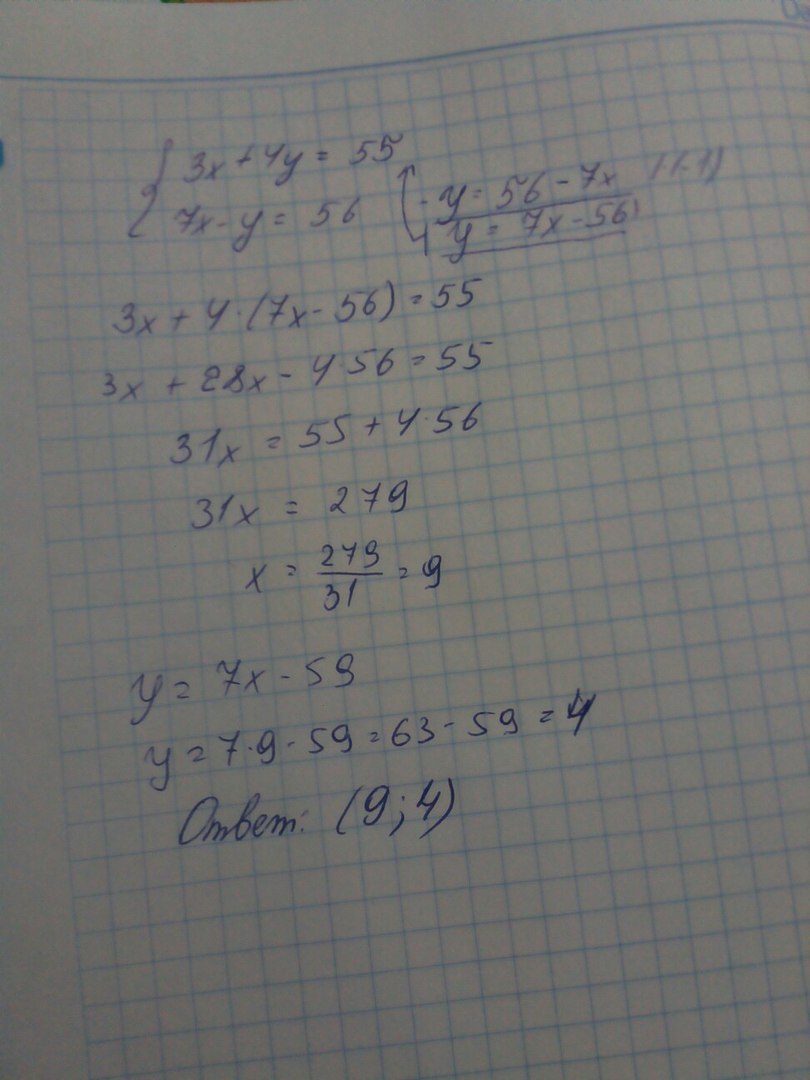 { 3x + 4y = 55
7x - y = 56
- y = 56 - 7x | (-1)
y = 7x - 56
3x + 4·(7x - 56) = 55
3x + 28x - 4·56 = 55
31x = 55 + 4·56
31x = 279
x = 279/31 = 9
y = 7x - 59
y = 7·9 - 59 = 63 - 59 = 4
Ответ: (9; 4)